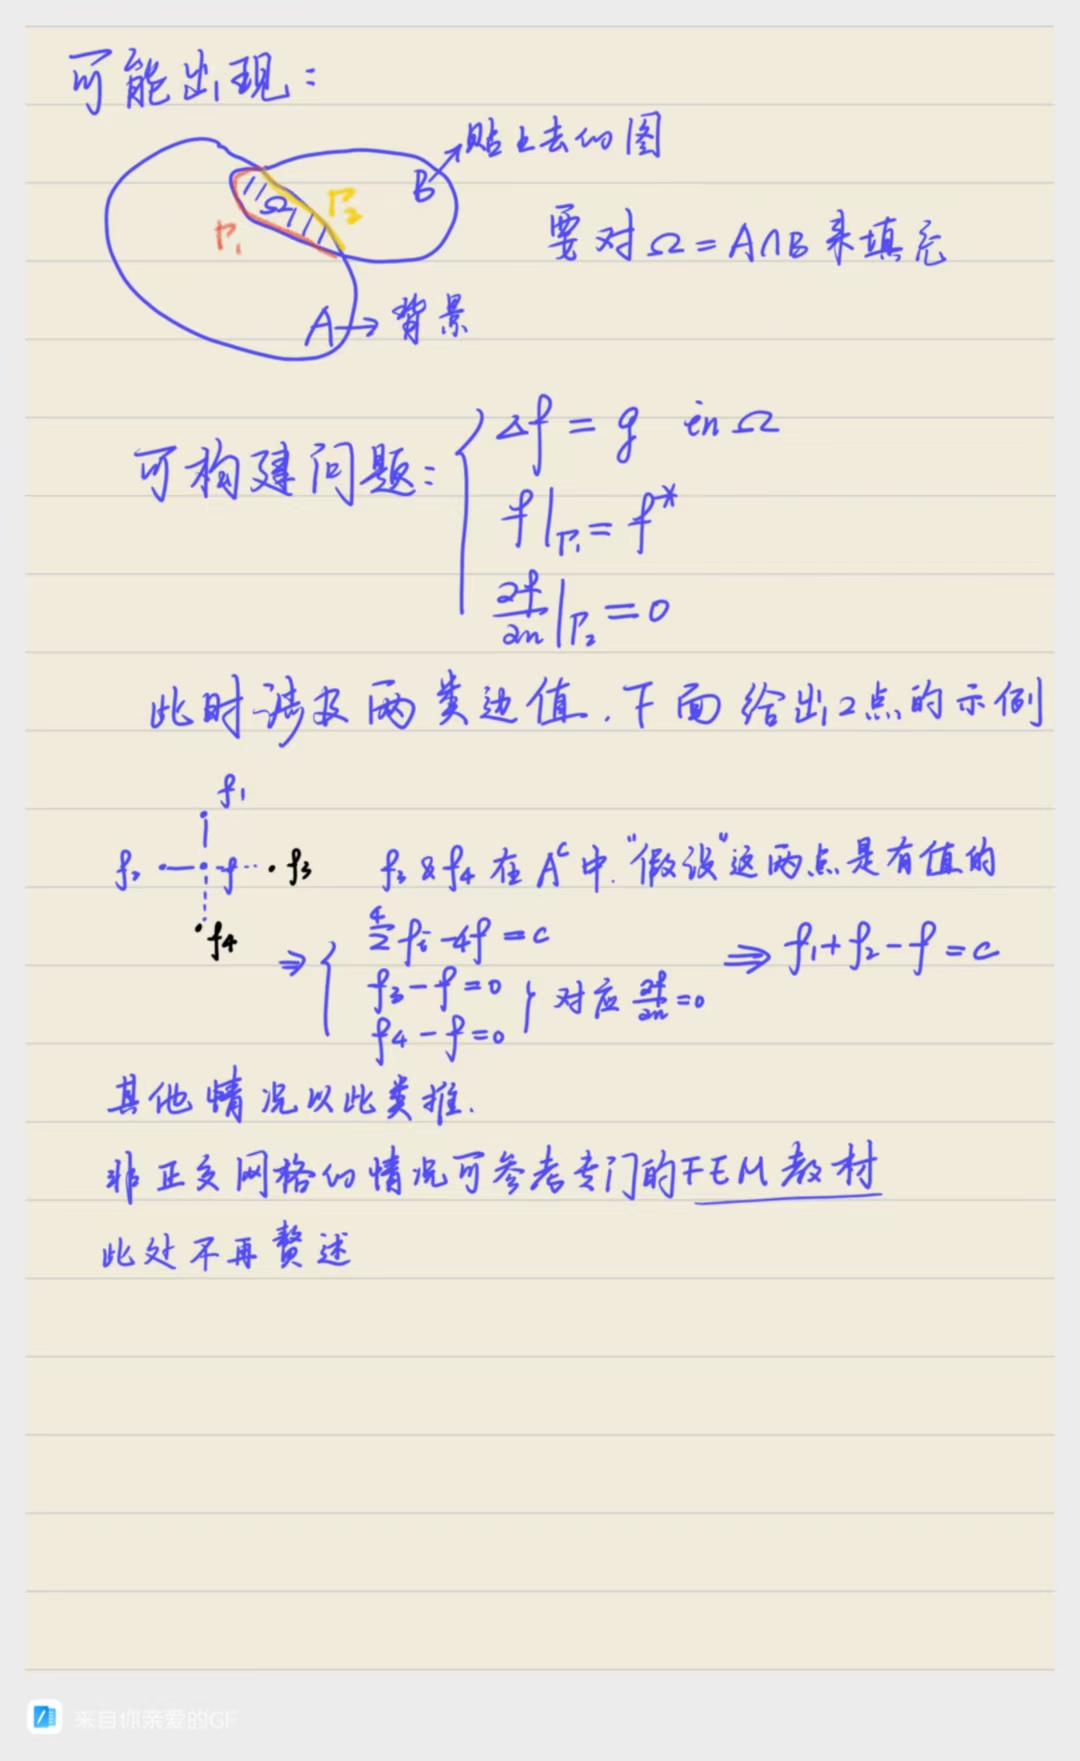 可能出现：
B→贴上去的图
Ω Γ₁ Γ₂
要对Ω=A∩B来填充
A→背景
可构建问题：{ Δf = g in Ω
f|Γ₁ = f*
∂f/∂n|Γ₂ = 0
此时涉及两类边值.下面给出2点的示例
f₁
f₂ f f₃
f₄
f₃&f₄在Aᶜ中."假设"这两点是有值的
⇒ { Σ⁴fᵢ-4f=c
f₃-f=0
f₄-f=0 } 对应 ∂f/∂n=0
⇒ f₁+f₂-f=c
其他情况以此类推.
非正交网格的情况可参考专门的FEM教材
此处不再赘述
来自你亲爱的GF